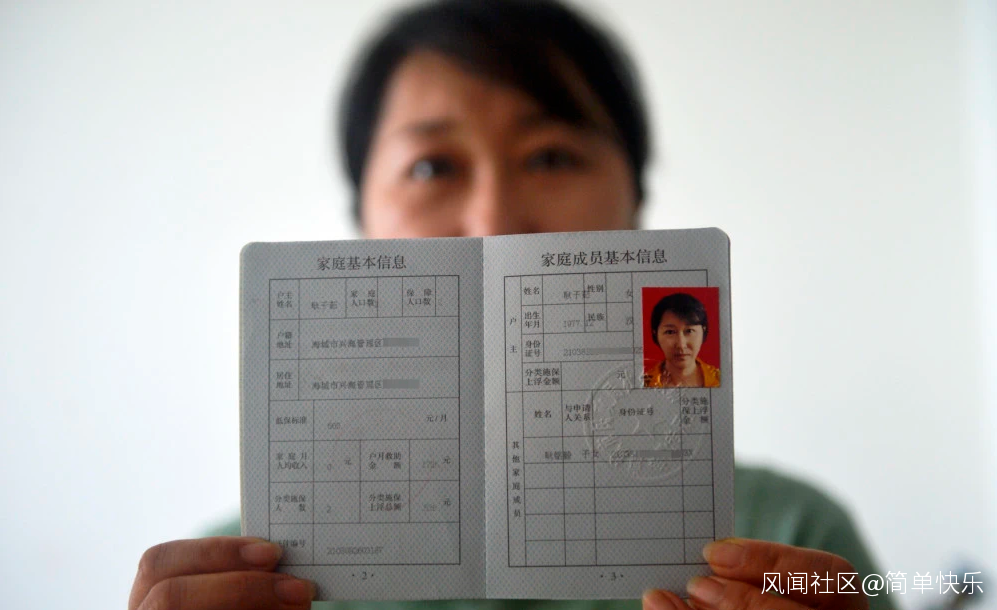 家庭基本信息
户主姓名 耿子茹 家庭人口数 保障人口数
户籍地址 海城市兴海管理区
居住地址 海城市兴海管理区
低保标准 元/月
家庭月人均收入 0 元 户月救助金额 元
分类施保人数 2 分类施保上浮总额 元
编号
·2·
家庭成员基本信息
户主
姓名 耿子茹 性别 女
出生年月 1977. 民族 汉
身份证号
分类施保上浮金额 元
其他家庭成员
姓名 与申请人关系 身份证号 分类施保上浮金额
子女
·3·
风闻社区@简单快乐